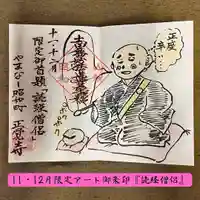 十一・十二月
限定御首題「読経僧侶」
やまなし昭和町 正覚寺
正座
辛…
ぽく
ぽく
11・12月限定アート御朱印『読経僧侶』